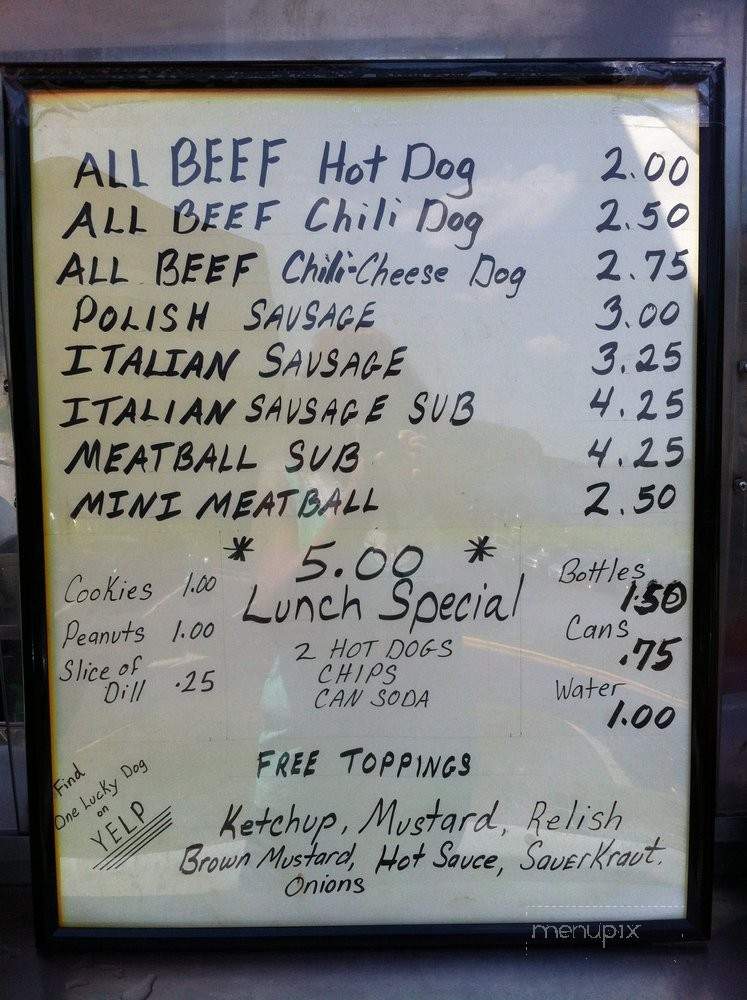 ALL BEEF Hot Dog 2.00
ALL BEEF Chili Dog 2.50
ALL BEEF Chili-Cheese Dog 2.75
POLISH SAUSAGE 3.00
ITALIAN SAUSAGE 3.25
ITALIAN SAUSAGE SUB 4.25
MEATBALL SUB 4.25
MINI MEATBALL 2.50
* 5.00 *
Lunch Special
2 HOT DOGS
CHIPS
CAN SODA
Cookies 1.00
Peanuts 1.00
Slice of
Dill .25
Bottles
1.50
Cans
.75
Water
1.00
FREE TOPPINGS
Ketchup, Mustard, Relish
Brown Mustard, Hot Sauce, SauerKraut.
Onions
Find
One Lucky Dog
on
YELP
menupix